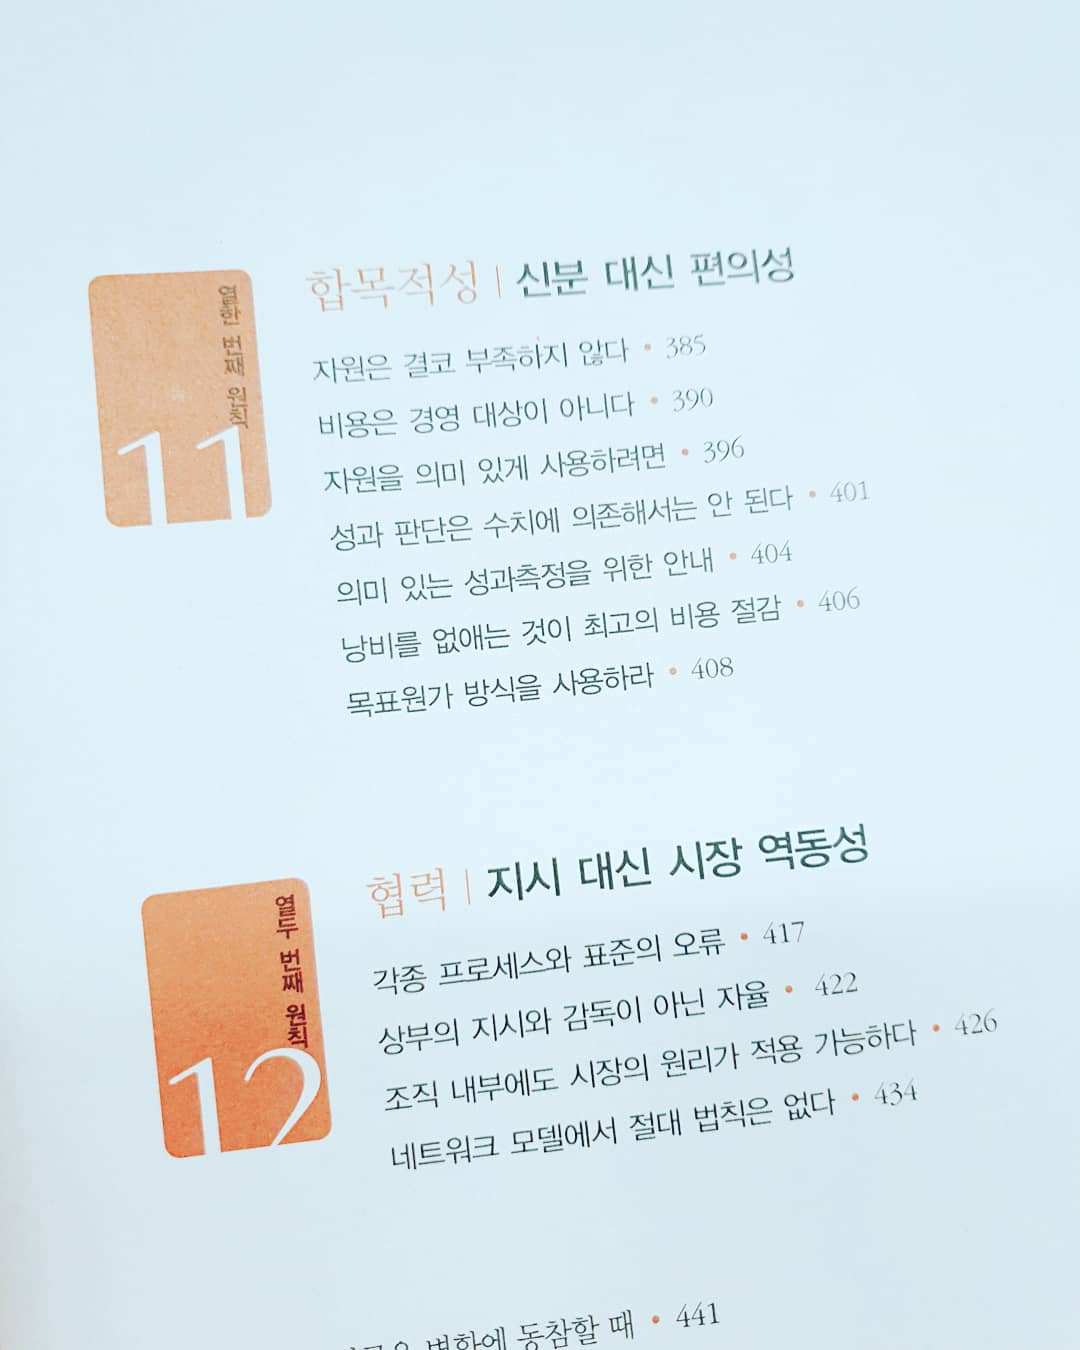 열한 번째 원칙
11
합목적성 | 신분 대신 편의성
자원은 결코 부족하지 않다 • 385
비용은 경영 대상이 아니다 • 390
자원을 의미 있게 사용하려면 • 396
성과 판단은 수치에 의존해서는 안 된다 • 401
의미 있는 성과측정을 위한 안내 • 404
낭비를 없애는 것이 최고의 비용 절감 • 406
목표원가 방식을 사용하라 • 408
열두 번째 원칙
12
협력 | 지시 대신 시장 역동성
각종 프로세스와 표준의 오류 • 417
상부의 지시와 감독이 아닌 자율 • 422
조직 내부에도 시장의 원리가 적용 가능하다 • 426
네트워크 모델에서 절대 법칙은 없다 • 434
변화에 동참할 때 • 441